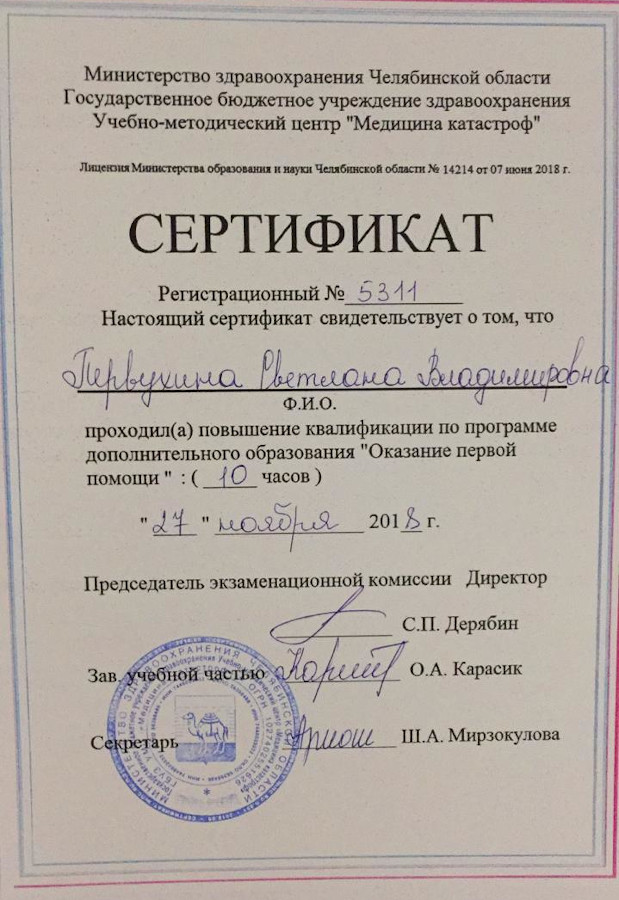 Министерство здравоохранения Челябинской области
Государственное бюджетное учреждение здравоохранения
Учебно-методический центр "Медицина катастроф"
Лицензия Министерства образования и науки Челябинской области № 14214 от 07 июня 2018 г.
СЕРТИФИКАТ
Регистрационный № 5311
Настоящий сертификат свидетельствует о том, что
Первухина Светлана Владимировна
Ф.И.О.
проходил(а) повышение квалификации по программе
дополнительного образования "Оказание первой
помощи " : ( 10 часов )
" 27 " ноября 2018 г.
Председатель экзаменационной комиссии Директор
С.П. Дерябин
Зав. учебной частью О.А. Карасик
Секретарь Ш.А. Мирзокулова
МИНИСТЕРСТВО ЗДРАВООХРАНЕНИЯ ЧЕЛЯБИНСКОЙ ОБЛАСТИ